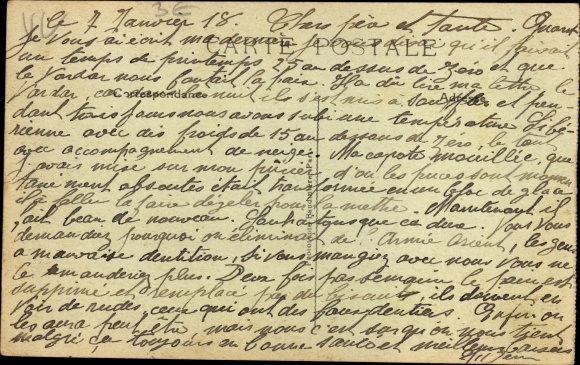 le 7 Janvier 18. Chers père et tante. Quant
je vous ai écrit ma dernière je vous disais qu'il faisait
CARTE POSTALE
un temps de printemps 25 au dessus de Zero et que
le Vardar nous foutait la paix. Il a dû lire ma lettre le
Correspondance
Adresse
Vardar, car la nuit il s'est mis à souffler et pen-
dant trois jours nous avons subi une température Sibé-
rienne avec des froids de 15 au dessous de Zero, le tout
avec accompagnement de neige. Ma capote mouillée, que
j'avais mise sur mon d'où les puces sont momen-
tanément absentes était transformée en un bloc de glace
Il fallu la faire dégeler pour la mettre. Maintenant il
fait beau de nouveau. Pourquoi on éliminait de l'Armée Orient, les gens
à mauvaise dentition, si vous mangiez avec nous vous ne
le demanderiez plus. Deux fois par semaine le pain est
supprimé et remplacé par du biscuit, ils doivent en
voir de rudes, ceux qui ont des fausses dents. Enfin on
les aura peut être, mais nous c'est sur qu'on nous tient
malgré ça toujours en bonne santé et meilleurs baisers